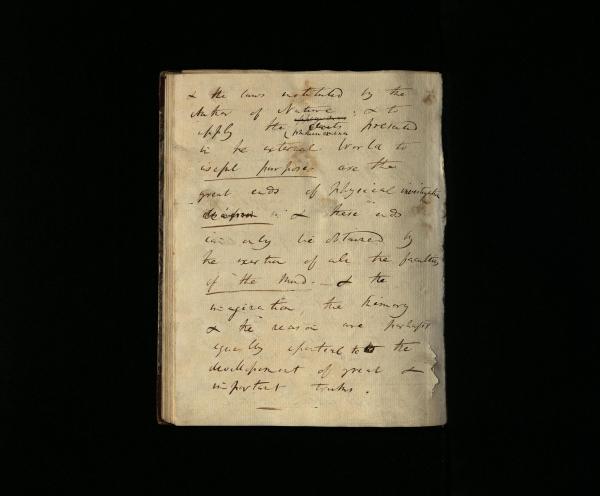 & the laws instituted by the
Author of Nature ; & to
apply the effects presented
in the external World to
useful purposes are the
great ends of physical investigation
& these ends
can only be obtained by
the exertion of all the faculties
of the Mind. - & the
imagination, the memory
& the reason are perhaps
equally essential to the
developement of great &
important truths.